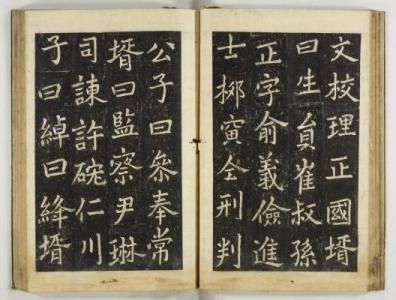 文校理正國壻
曰生員崔叔孫
正字俞義儉進
士栁寅仝刑判
公子曰叅奉常
壻曰監察尹琳
司諫許硡仁川
子曰綽曰絳壻